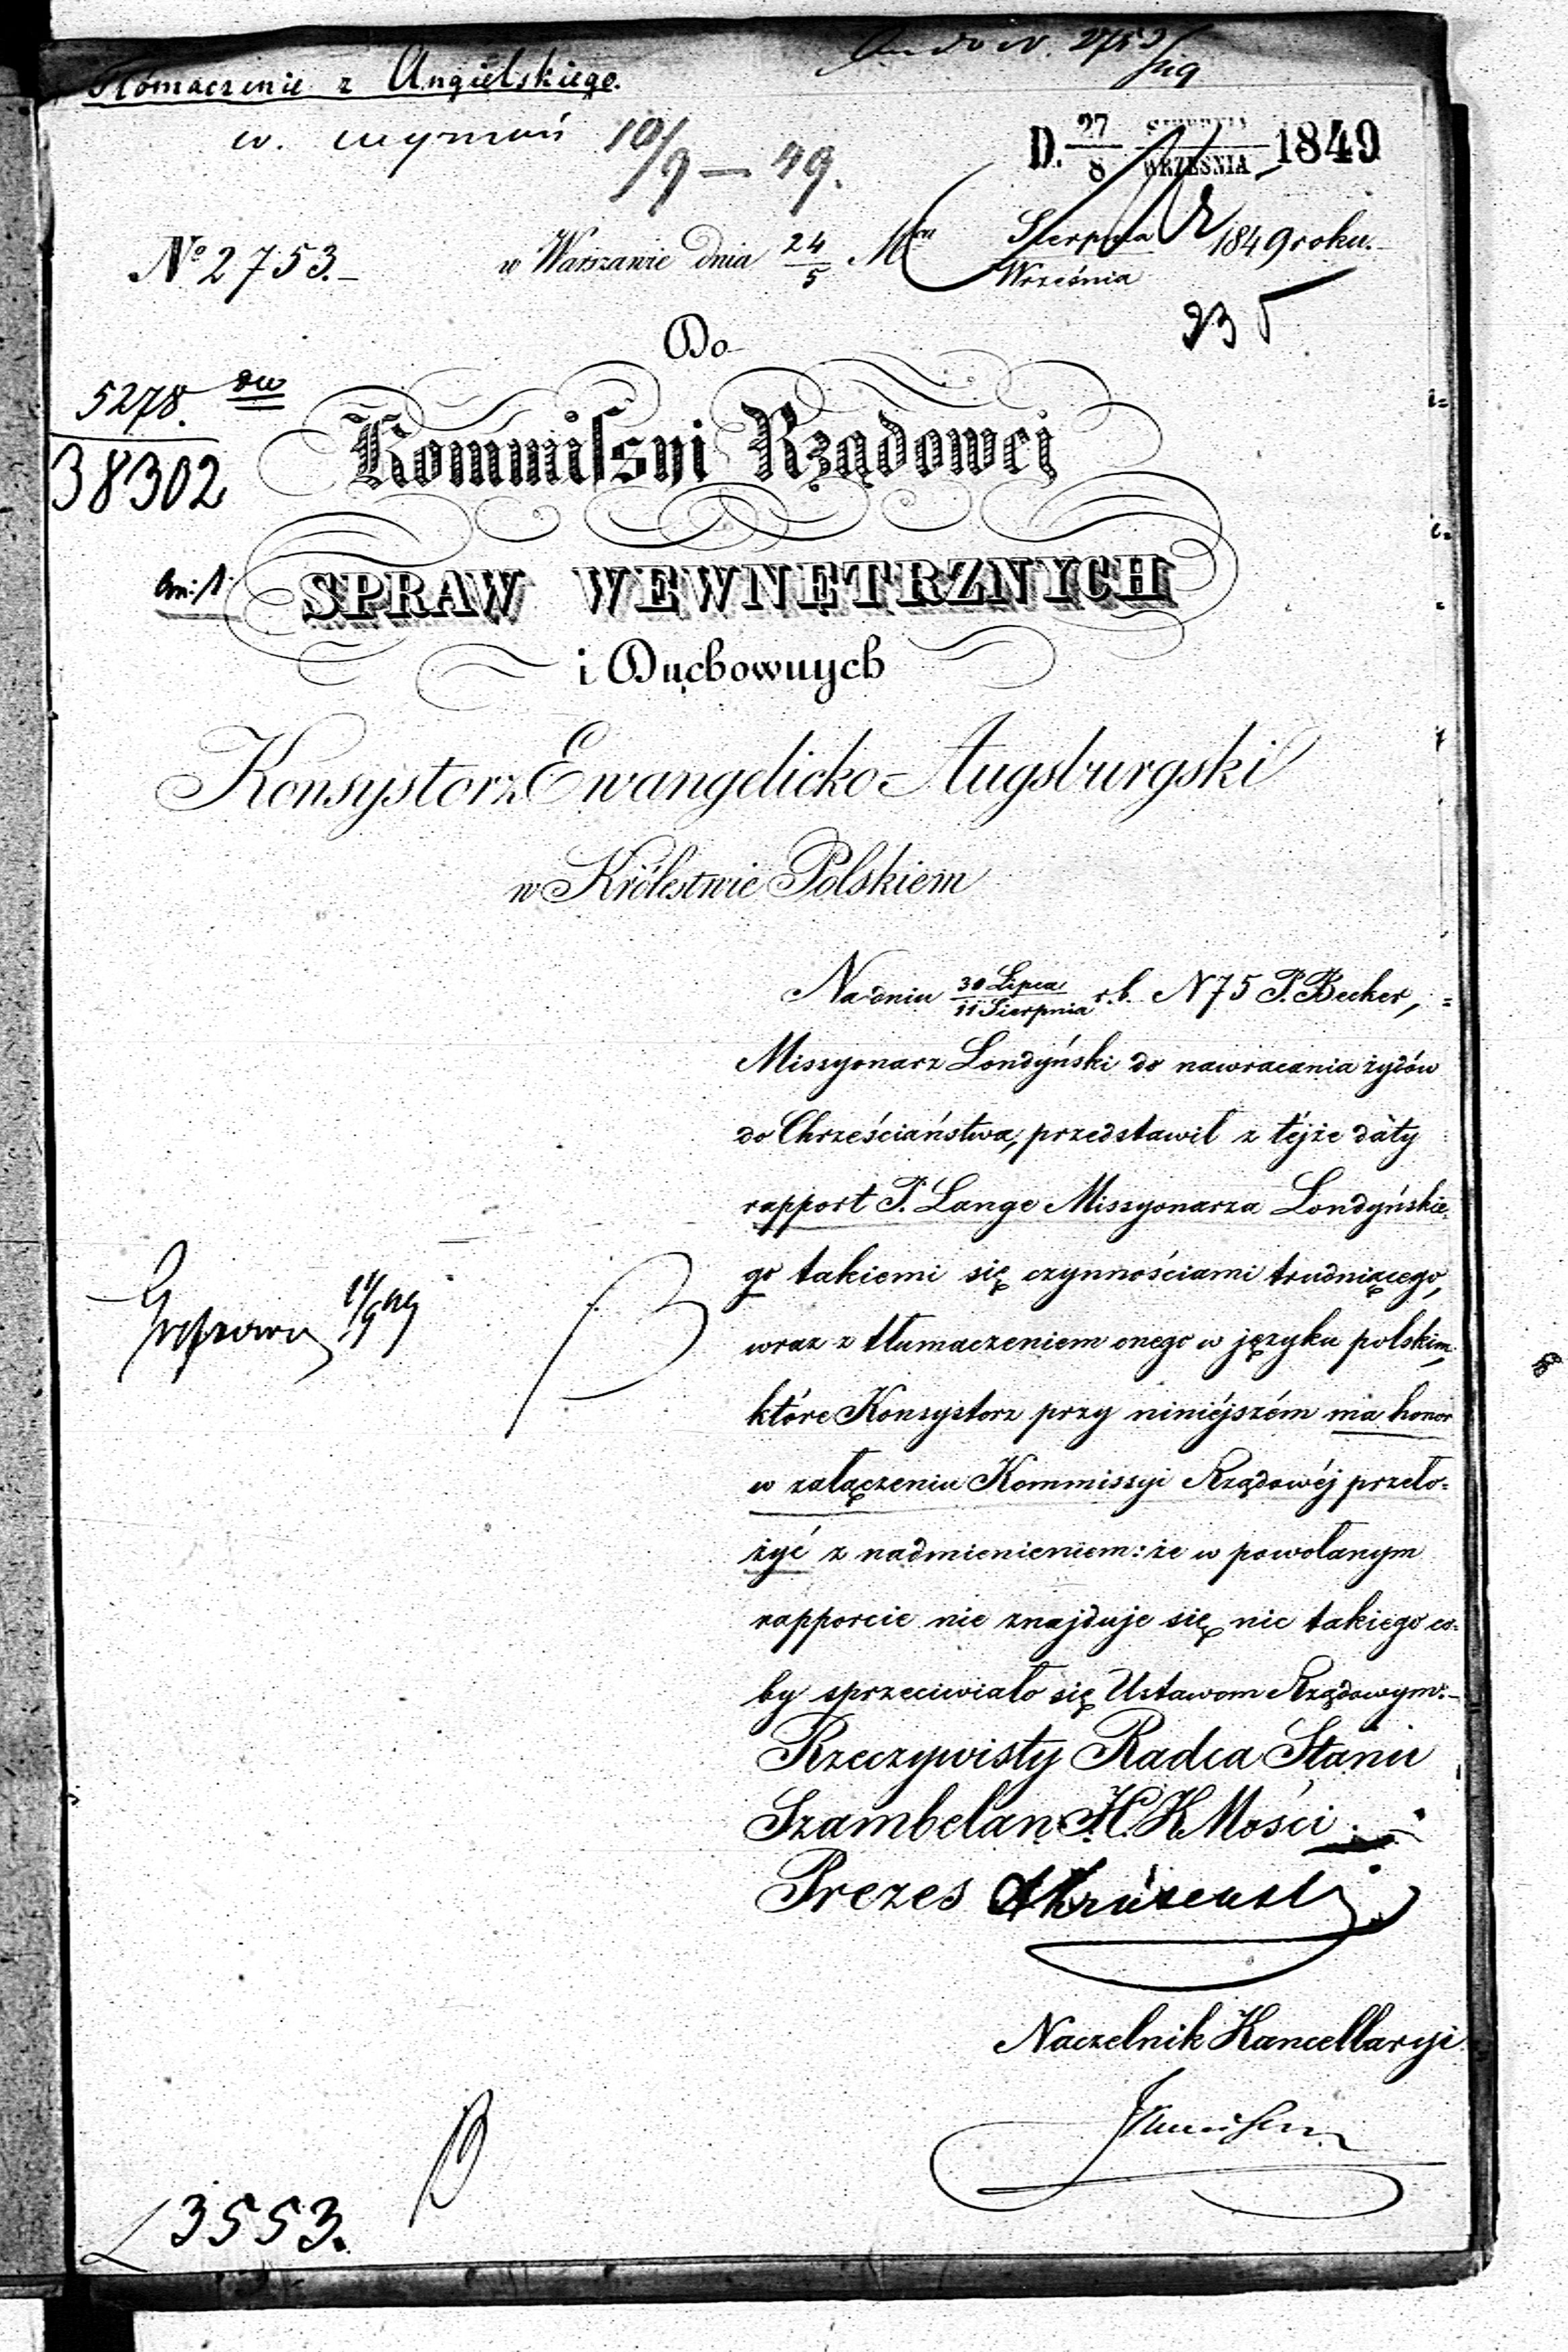 Tłomaczenie z Angielskiego.
2753
10/9 — 49.
D. 27/8 SIERPNIA/WRZEŚNIA 1849
№ 2753.-
w Warszawie dnia 24/5 Mca Sierpnia/Września 1849 roku.
235
Do
5278.
38302
Kommissyi Rządowej
SPRAW WEWNĘTRZNYCH
i Duchownych
Konsystorz Ewangelicko-Augsburgski
w Królestwie Polskiem
Na dniu 30 Lipca/11 Sierpnia r.b. N 75 P. Becker,
Missyonarz Londyński do nawracania żydów
do Chrześciaństwa, przedstawił z téjże daty
rapport P. Lange Missyonarza Londyńskie-
go takiemi się czynnościami trudniącego,
wraz z tłumaczeniem onego w języku polskim,
które Konsystorz przy niniéjszém ma honor
w załączeniu Kommissyi Rządowéj przeło-
żyć z nadmienieniem: że w powołanym
rapporcie nie znajduje się nic takiego co-
by sprzeciwiało się Ustawom Rządowym.-
Rzeczywisty Radca Stanu
Szambelan
Prezes
Naczelnik Kancellaryi
11/9 49
3553.